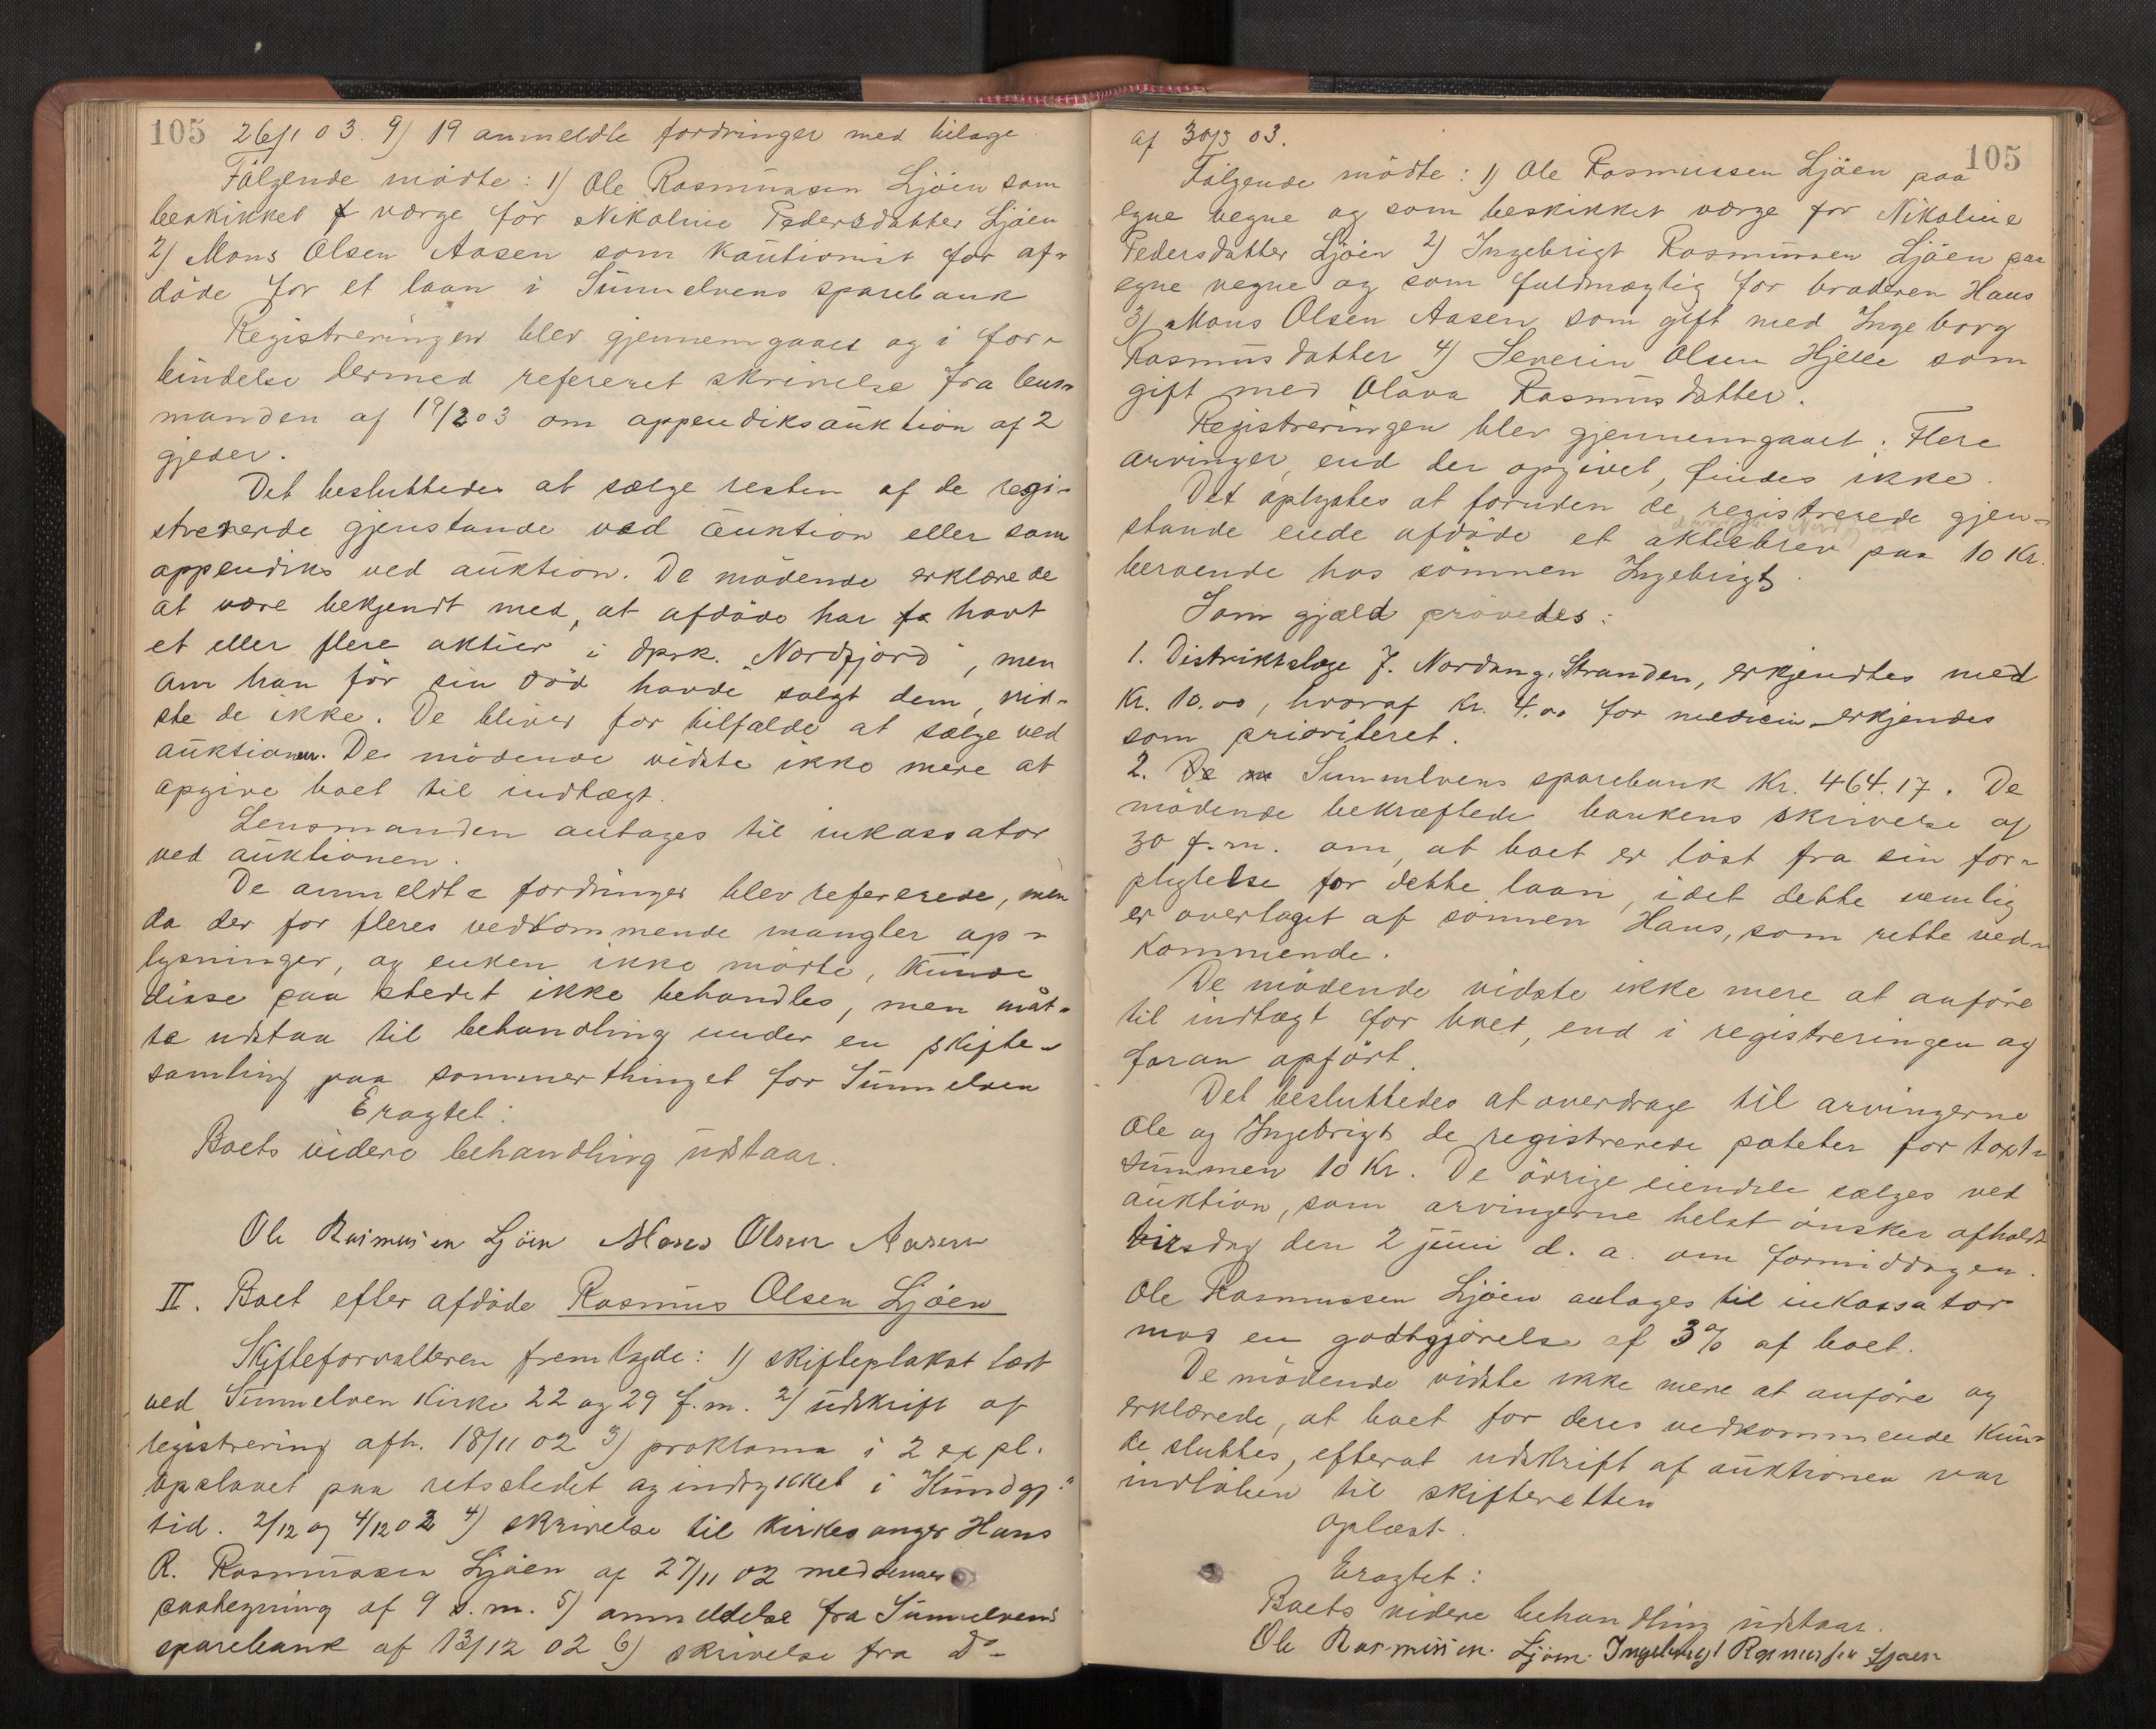 105 26/1 03. 9) 19 anmeldte fordringer med bilage
Følgende mødte: 1) Ole Rasmussen Ljøen som
beskikket værge for Nikoline Pedersdatter Ljøen
2) Mons Olsen Aasen som kautionist for af-
døde for et laan i Sunnelvens sparebank
Registreringen blev gjennemgaaet og i for-
bindelse dermed refereret skrivelse fra lens-
manden af 19/2 03 om appendiksauktion af 2
gjeder.
Det besluttedes at sælge resten af de regi-
strerede gjenstande ved auktion eller som
appendiks ved auktion. De mødende erklærede
at være bekjendt med, at afdøde har havt
et eller flere aktier i dpsk. "Nordfjord", men
om han før sin død havde solgt dem, vid-
ste de ikke. De bliver for tilfælde at sælge ved
auktionen. De mødende vidste ikke mere at
opgive boet til indtægt.
Lensmanden antages til inkassator
ved auktionen.
De anmeldte fordringer blev refererede, men
da der for fleres vedkommende mangler op-
lysninger, og enken ikke mødte, kunde
disse paa stedet ikke behandles, men maat-
te udstaa til behandling under en skifte-
samling paa sommerthinget for Sunnelven
Eragtet:
Boets videre behandling udstaar.
Ole Rasmusen Ljøen Mons Olsen Aasen
II. Boet efter afdøde Rasmus Olsen Ljøen
Skifteforvalteren fremlagde: 1) skifteplakat læst
ved Sunnelven Kirke 22 og 29 f.m. 2) udskrift af
registrering afh. 18/11 02 3) proklama i 2 expl.
opslaaet paa retsstedet og indrykket i "Kundgj."
tid. 2/12 og 4/12 02 4) skrivelse til kirkesanger Hans
R. Rasmussen Ljøen af 27/11 02 med dennes
paategning af 9 s.m. 5) anmeldelse fra Sunnelvens
sparebank af 13/12 02 6) skrivelse fra do
af 30/3 03. 105
Følgende mødte: 1) Ole Rasmussen Ljøen paa
egne vegne og som beskikket værge for Nikoline
Pedersdatter Ljøen 2) Ingebrigt Rasmussen Ljøen paa
egne vegne og som fuldmægtig for broderen Hans
3) Mons Olsen Aasen som gift med Ingeborg
Rasmusdatter 4) Severin Olsen Hjelle som
gift med Olava Rasmusdatter.
Registreringen blev gjennemgaaet. Flere
arvinger, end der opgivet, findes ikke.
Det oplystes at foruden de registrerede gjen-
stande eiede afdøde et aktiebrev paa 10 Kr.
beroende hos sønnen Ingebrigt.
Som gjæld prøvedes:
1. Distriktslæge J. Nordang, Stranden, erkjendtes med
Kr. 10.00, hvoraf Kr. 4.00 for medicin erkjendes
som prioriteret.
2. Sunnelvens sparebank Kr. 464.17. De
mødende bekræftede bankens skrivelse af
30 f.m. om, at boet er løst fra sin for-
pligtelse for dette laan, idet dette nemlig
er overtaget af sønnen Hans, som rette ved-
kommende.
De mødende vidste ikke mere at anføre
til indtægt for boet, end i registreringen og
foran opført.
Det besluttedes at overdrage til arvingerne
Ole og Ingebrigt de registrerede poteter for taxt-
summen 10 Kr. De øvrige eiendele sælges ved
auktion, som arvingerne helst ønsker afholdt
tirsdag den 2 juni d. a. om formiddagen.
Ole Rasmussen Ljøen antages til inkassator
mod en godtgjørelse af 3% af boet.
De mødende vidste ikke mere at anføre og
erklærede, at boet for deres vedkommende kun-
de sluttes, efterat udskrift af auktionen var
indløben til skifteretten
Oplæst.
Eragtet:
Boets videre behandling udstaar.
Ole Rasmusen. Ljøen. Ingebrigt Rasmusen Ljøen